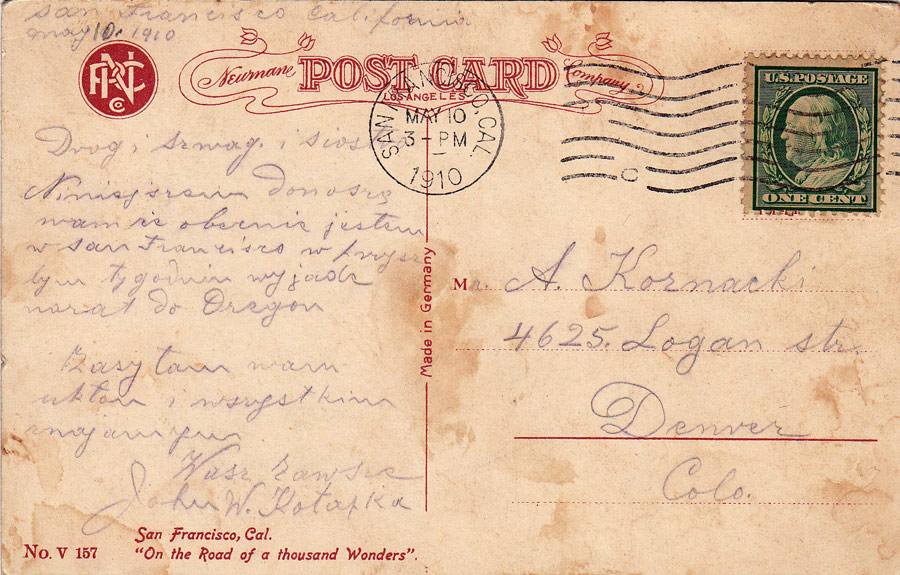 San Francisco California
may 10. 1910
Neumane POST CARD Company
LOS ANGELES
SAN FRANCISCO, CAL.
MAY 10
3-PM
1910
U.S. POSTAGE
ONE CENT
Drogi szwag. i siostra
Niniejszem donoszę
wam że obecnie jestem
w San Francisco w przysz
łym tygodniu wyjadę
narat do Oregon
Zasyłam wam
ukłon i wszystkim
znajomym
Wasz zawsze
John W. Kotapka
Made in Germany
Mr. A. Kornacki
4625. Logan str.
Denver
Colo.
San Francisco, Cal.
No. V 157 "On the Road of a thousand Wonders".